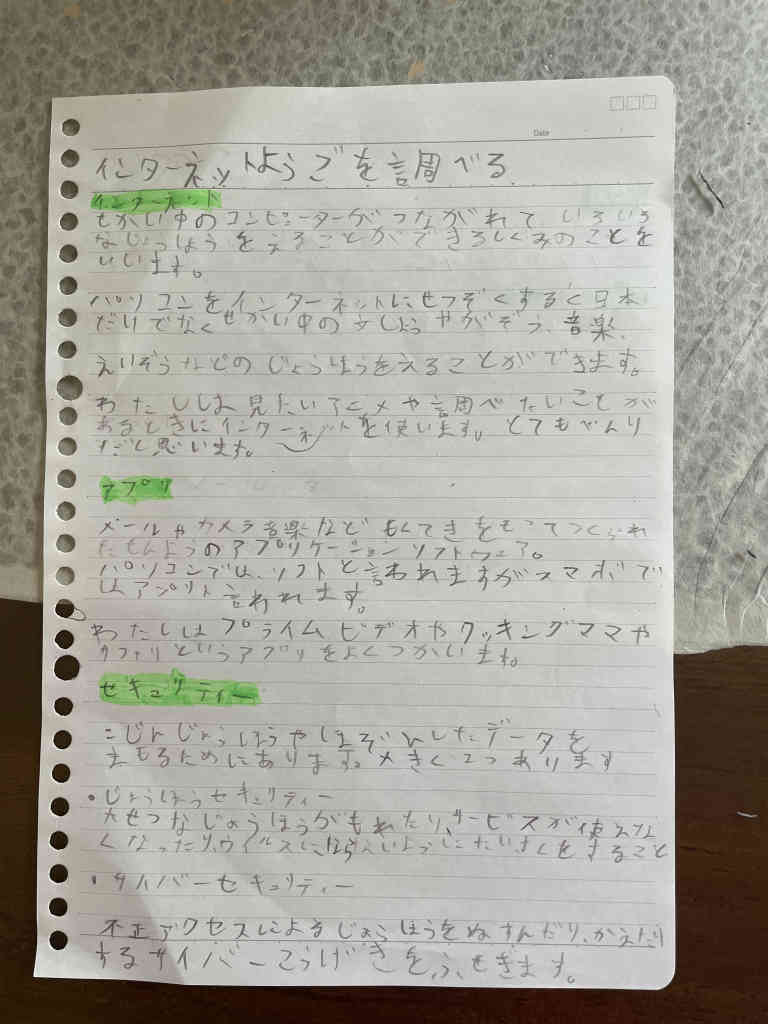 Date
インターネットようごを調べる
インターネット
せかい中のコンピューターがつながれて いろいろ
なじょうほうをえることができるしくみのことを
いいます。
パソコンをインターネットにせつぞくすると日本
だけでなくせかい中の文しょうやがぞう、音楽、
えいぞうなどのじょうほうをえることができます。
わたしは見たいアニメや調べたいことが
あるときにインターネットを使います。とてもべんり
だと思います。
アプリ
メールやカメラ音楽などもくてきをもってつくられ
たせんようのアプリケーションソフトウェア。
パソコンでは、ソフトと言われますがスマホで
はアプリと言われます。
わたしはプライムビデオやクッキングママや
サファリというアプリをよくつかいます。
セキュリティー
こじんじょうほうやほぞんしたデータを
まもるためにあります。大きく2つあります
・じょうほうセキュリティー
大せつなじょうほうがもれたり、サービスが使えな
くなったり、ウイルスにならないようにたいさくをすること
・サイバーセキュリティー
不正アクセスによるじょうほうをぬすんだり、かえたり
するサイバーこうげきをふせぎます。